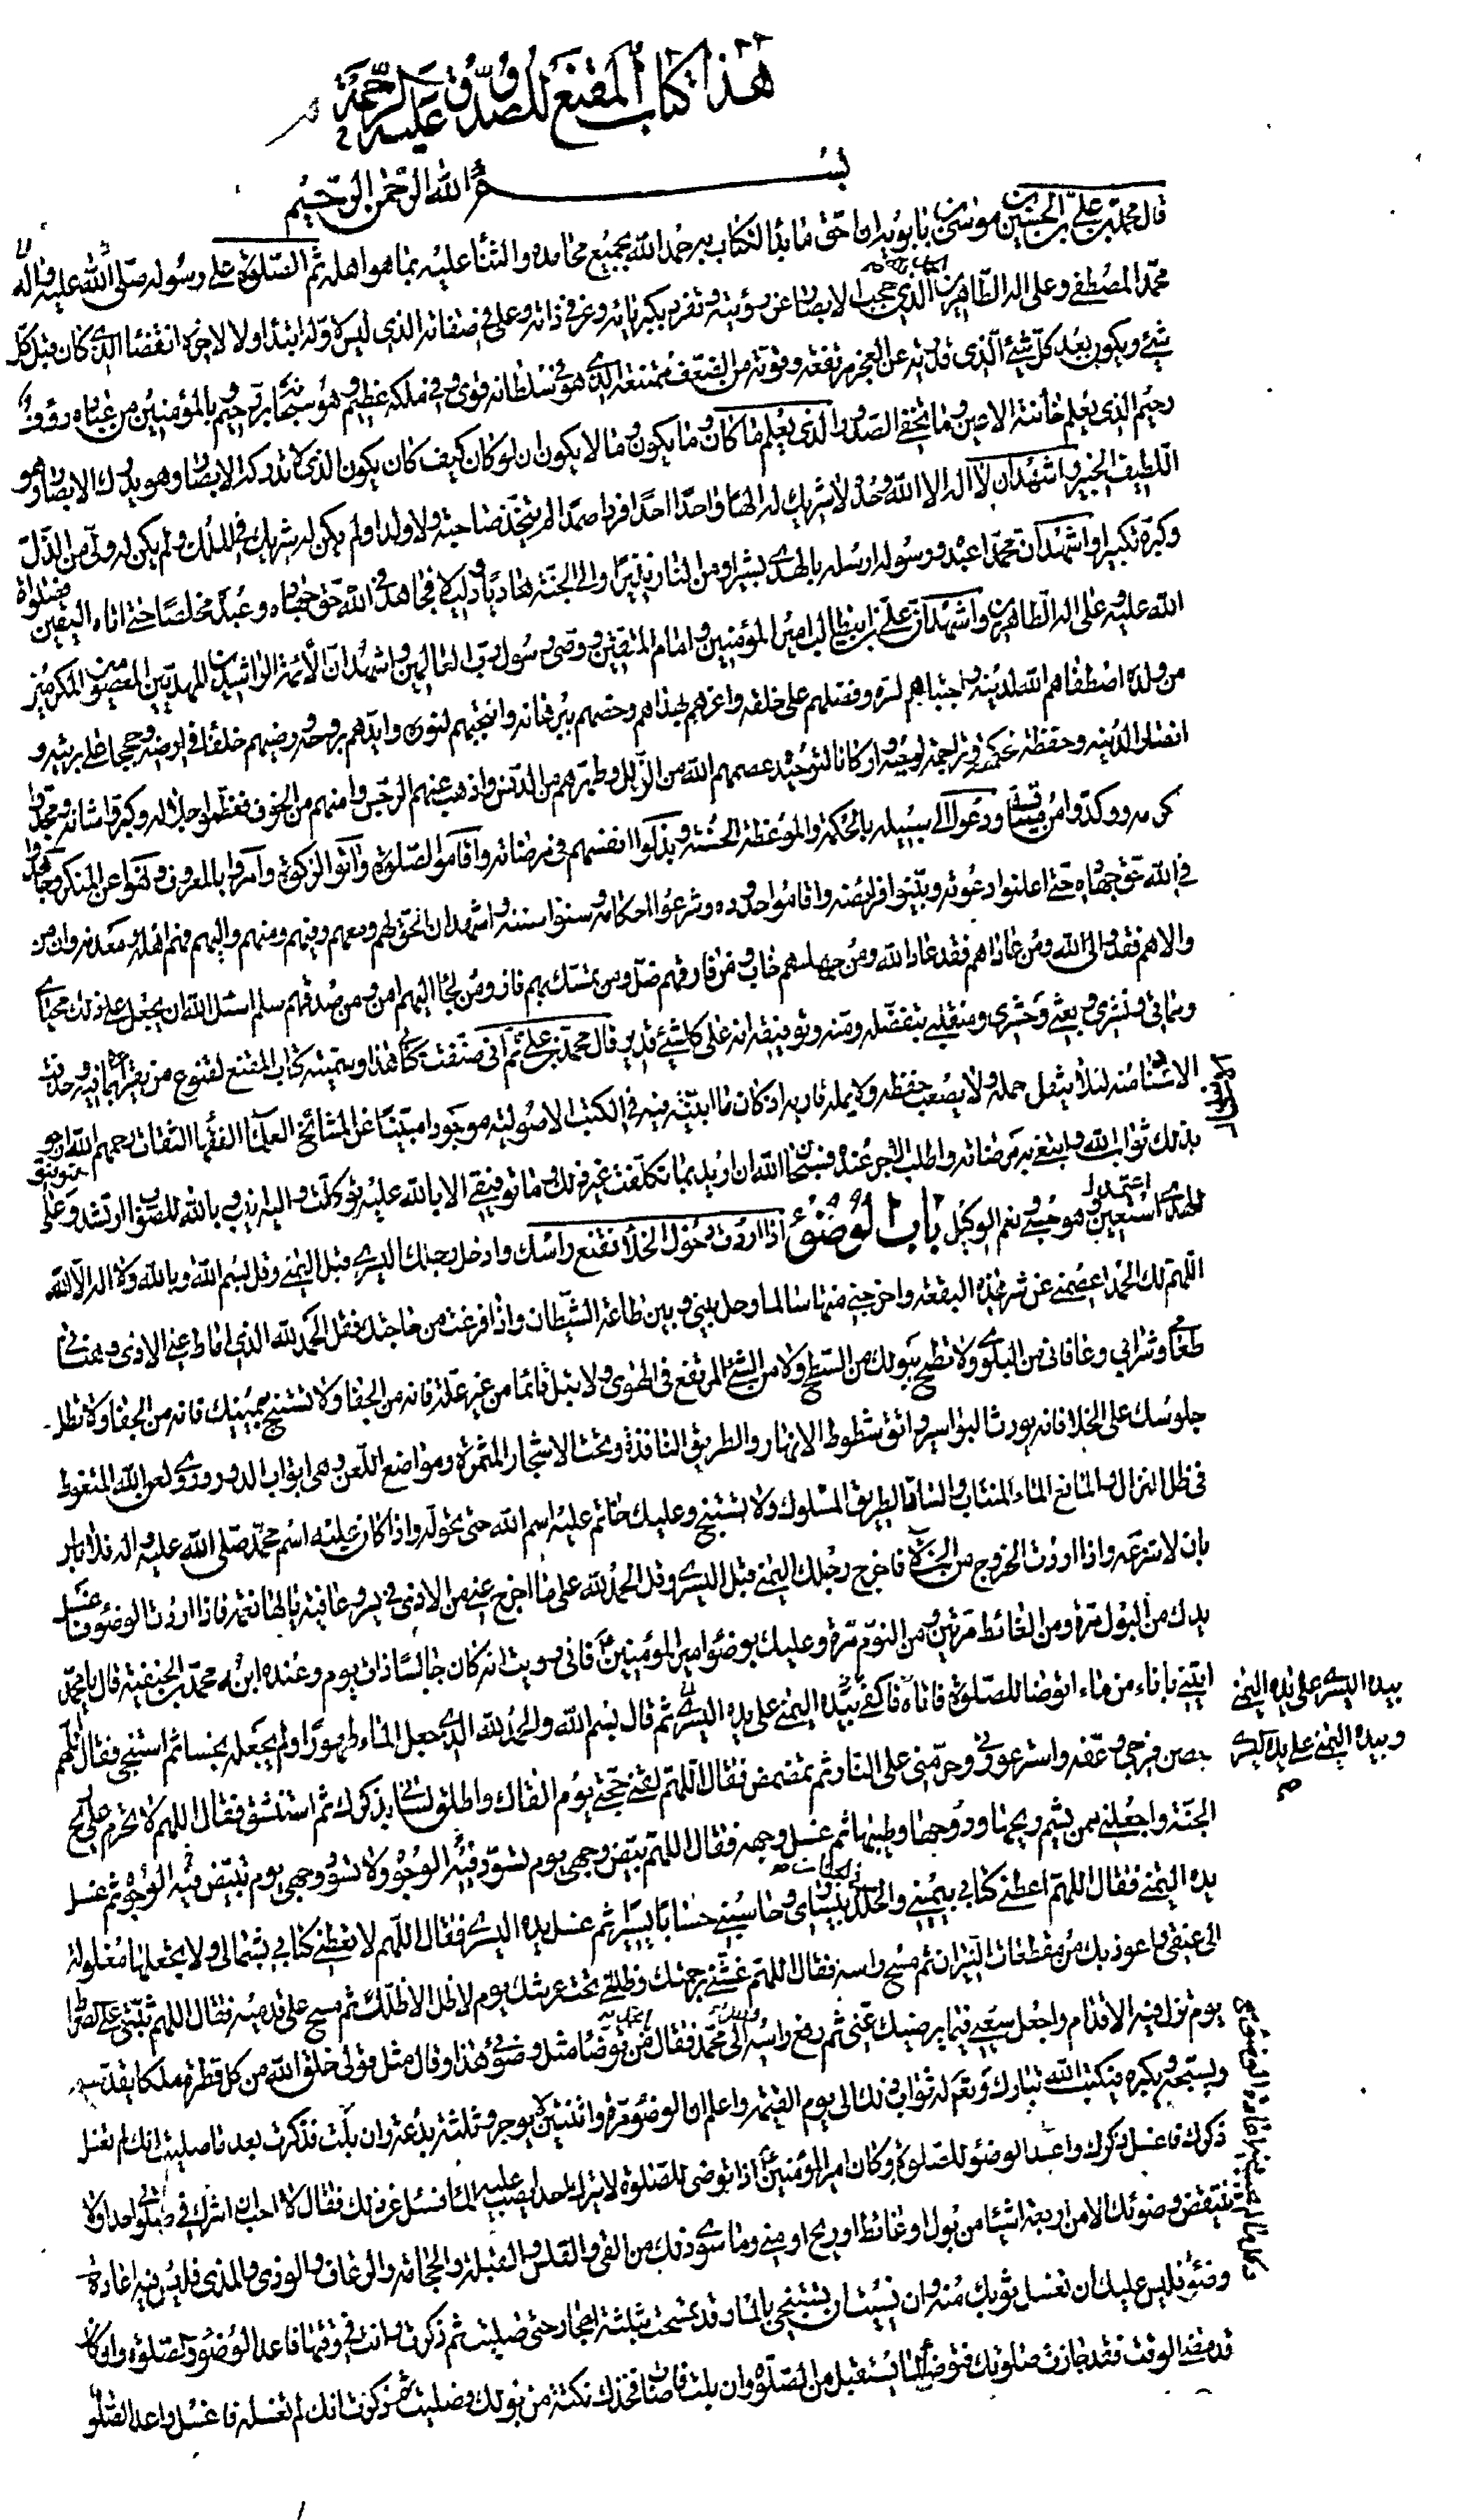 هذا كتاب المقنع للصدوق عليه الرحمة
بسم الله الرحمن الرحيم
قال محمد بن علي بن الحسين بن موسى بن بابويه ان احق ما بدا الكتاب به حمد الله بجميع محامده والثناء عليه بما هو اهله ثم الصلوة على رسوله صلى الله عليه واله
محمد المصطفى وعلى اله الطاهرين الذي حجب الابصار عن رؤيته وتفرد بكبريائه وعز في ذاته وعلى في صفاته الذي ليس لاوله ابتداء ولا لاخره انقضاء الذي كان قبل كل
شيء ويكون بعد كل شيء الذي قدرته عن العجز مرتفعة وقوته من الضعف ممتنعة الذي هو في سلطانه قوي وفي ملكه عظيم وهو سبحانه بر رحيم بالمؤمنين من عباده رؤف
رحيم الذي يعلم خائنة الاعين وما تخفى الصدور الذي يعلم ما كان وما يكون وما لا يكون ان لو كان كيف كان يكون الذي لا تدركه الابصار وهو يدرك الابصار وهو
اللطيف الخبير واشهد ان لا اله الا الله وحده لا شريك له الها واحدا احدا فردا صمدا لم يتخذ صاحبة ولا ولدا ولم يكن له شريك في الملك ولم يكن له ولي من الذل
وكبره تكبيرا واشهد ان محمدا عبده ورسوله ارسله بالهدى بشيرا ومن النار نذيرا والى الجنة هاديا ودليلا فجاهد في الله حق جهاده وعبده مخلصا حتى اتاه اليقين فصلوة
الله عليه وعلى اله الطاهرين واشهد ان علي بن ابيطالب امير المؤمنين وامام المتقين ووصي رسول رب العالمين واشهد ان الأئمة الراشدين المهديين المعصومين المكرمين
من ولده اصطفاهم الله لدينه واجتباهم لسره وفضلهم على خلقه واعزهم بهداهم وخصهم ببرهانه وانتجبهم لنوره وايدهم بروحه ورضيهم خلفاء في ارضه وحججا على بريته و
انصارا لدينه وحفظة لحكمته وتراجمة لوحيه واركانا لتوحيده عصمهم الله من الزلل وطهرهم من الدنس واذهب عنهم الرجس وامنهم من الخوف فعظموا جلاله وكبروا شانه ومجدوا
كرمه ووكدوا ميثاقه ودعوا الى سبيله بالحكمة والموعظة الحسنة وبذلوا انفسهم في مرضاته واقاموا الصلوة واتوا الزكوة وآمروا بالمعروف ونهوا عن المنكر وجاهدوا
في الله حق جهاده حتى اعلنوا دعوته وبينوا فرائضه واقاموا حدوده وشرعوا احكامه وسنوا سننه واشهد ان الحق لهم ومعهم وفيهم ومنهم واليهم وهم اهله ومعدنه وان من
والاهم فقد والى الله ومن عاداهم فقد عاد الله ومن جهلهم خاب ومن فارقهم ضل ومن تمسك بهم فاز ومن لجا اليهم امن ومن صدقهم سلم اسئل الله ان يجعل على ذلك محياي
ومماتي ونشري وبعثي وحشري ومنقلبي بتفضله ومنه وتوفيقه انه على كل شيء قدير قال محمد بن علي ثم اني صنفت كتابي هذا وسميته كتاب المقنع لقنوع من يقراه بما فيه وحذفت
الاسناد منه لئلا يثقل حمله ولا يصعب حفظه ولا يمله قاريه اذ كان ما ابينه فيه في الكتب الاصولية موجودا مبينا عن المشايخ العلماء الفقهاء الثقات رحمهم الله ارجو
بذلك ثواب الله وابتغي به مرضاته واطلب الاجر عنده فسبحان الله ان اريد بما تكلفت غير ذلك وما توفيقي الا بالله عليه توكلت واليه انيب وبالله للصواب ارشد وعلى
استعين وهو حسبي ونعم الوكيل باب الوضوء اذا اردت دخول الخلاء فقنع راسك وادخل رجلك اليسرى قبل اليمنى وقل بسم الله وبالله ولا اله الا الله
اللهم لك الحمد اعصمني عن شر هذه البقعة واخرجني منها سالما وحل بيني وبين طاعة الشيطان واذا فرغت من حاجتك فقل الحمد لله الذي اماط عني الاذى وهناني
طعامي وشرابي وعافاني من البلوى ولا تطمح ببولك من السطح ولا من الشيء المرتفع في الهوى ولا تبل قائما من غير علة فانه من الجفاء ولا تستنج بيمينك فانه من الجفاء ولا تطل
جلوسك على الخلاء فانه يورث البواسير واتق شطوط الانهار والطريق النافذة وتحت الاشجار المثمرة ومواضع اللعن وهي ابواب الدور وروي لعن الله المتغوط
في ظل النزال والمانع الماء المنتاب والساد الطريق المسلوك ولا تستنج وعليك خاتم عليه اسم الله حتى تحوله واذا كان عليه اسم محمد صلى الله عليه واله فلا باس
بان لا تنزعه واذا اردت الخروج من الخلاء فاخرج رجلك اليمنى قبل اليسرى وقل الحمد لله على ما اخرج عني من الاذى في يسر وعافية يا لها نعمة فاذا اردت الوضوء فاغسل
يدك من البول مرة ومن الغائط مرتين ومن النوم مرة وعليك بوضوء امير المؤمنين فاني رويت انه كان جالسا ذات يوم وعنده ابنه محمد بن الحنفية قال يا محمد
ايتني باناء من ماء اتوضا للصلوة فاتاه فاكفى بيده اليمنى على يده اليسرى ثم قال بسم الله والحمد لله الذي جعل الماء طهورا ولم يجعله نجسا ثم استنجى فقال اللهم
بيده اليسرى على يده اليمنى
وبيده اليمنى على يده اليسرى
حصن فرجي وعفه واستر عورتي وحرمني على النار ثم تمضمض فقال اللهم لقني حجتي يوم القاك واطلق لساني بذكرك ثم استنشق فقال اللهم لا تحرم علي ريح
الجنة واجعلني ممن يشم ريحها وروحها وطيبها ثم غسل وجهه فقال اللهم بيض وجهي يوم تسود فيه الوجوه ولا تسود وجهي يوم تبيض فيه الوجوه ثم غسل
يده اليمنى فقال اللهم اعطني كتابي بيميني والخلد بيساري وحاسبني حسابا يسيرا ثم غسل يده اليسرى فقال اللهم لا تعطني كتابي بشمالي ولا تجعلها مغلولة
الى عنقي واعوذ بك من مقطعات النيران ثم مسح راسه فقال اللهم غشني برحمتك وظللني تحت عرشك يوم لا ظل الا ظلك ثم مسح على قدميه فقال اللهم ثبتني على الصراط
يوم تزل فيه الاقدام واجعل سعيي فيما يرضيك عني ثم رفع راسه الى محمد فقال من توضا مثل وضوئي هذا وقال مثل قولي خلق الله من كل قطرة ملكا يقدسه
ويسبحه ويكبره فيكتب الله تبارك وتعالى له ثواب ذلك الى يوم القيمة واعلم ان الوضوء مرة واثنتين لا يوجر وثلثة بدعة وان بلت فذكرت بعد ما صليت انك لم تغسل
ذكرك فاغسل ذكرك واعد الوضوء للصلوة وكان امير المؤمنين اذا توضى للصلوة لا يترك احد يصب عليه الماء فسئل عن ذلك فقال لا احب ان اشرك في صلوتي احدا ولا
تنقض وضوئك الا من اربعة اشياء من بول او غائط او ريح او مني وما سوى ذلك من القيء والقلس والقبلة والحجامة والرعاف والوذي والمذي فليس فيه اعادة
وضوء وليس عليك ان تغسل ثوبك منه وان نسيت ان تستنجي بالماء وقد تمسحت بثلثة احجار حتى صليت ثم ذكرت وانت في وقتها فاعد الوضوء والصلوة وان كان
قد مضى الوقت فقد جازت صلوتك فتوضا لما تستقبل من الصلوة وان بلت فاصاب فخذك نكتة من بولك وصليت ثم ذكرت انك لم تغسله فاغسل واعد الصلوة